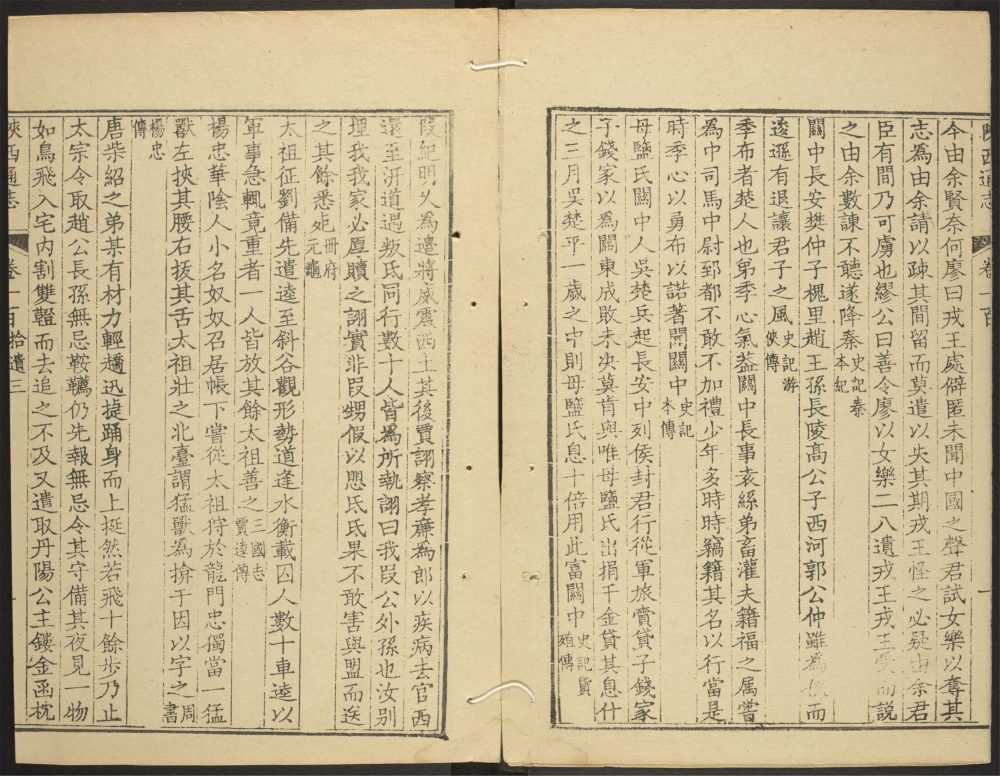 陝西通志 卷一百
今由余賢奈何廖曰戎王處僻匿未聞中國之聲君試女樂以奪其
志為由余請以疎其間留而莫遣以失其期戎王怪之必疑由余君
臣有間乃可虜也繆公曰善令廖以女樂二八遺戎王戎王受而說
之由余數諫不聽遂降秦史記秦本紀
關中長安樊仲子槐里趙王孫長陵高公子西河郭公仲雖為俠而
逡遜有退讓君子之風史記游俠傳
季布者楚人也弟季心氣蓋關中長事袁絲弟畜灌夫籍福之属嘗
為中司馬中尉郅都不敢不加禮少年多時時竊籍其名以行當是
時季心以勇布以諾著聞關中史記本傳
母鹽氏關中人吳楚兵起長安中列侯封君行從軍旅齎貸子錢家
子錢家以為關東成敗未决莫肯與唯母鹽氏出捐千金貸其息什
之三月吳楚平一歲之中則母鹽氏息十倍用此富關中史記貨殖傳
段紀明久為邊將威震西土其後賈詡察孝亷為郎以疾病去官西
還至汧道遇叛氐同行數十人皆為所執詡曰我段公外孫也汝别
埋我我家必厚贖之詡實非段甥假以愳氐氐果不敢害與盟而送
之其餘悉死冊府元龜
太祖征劉備先遣逵至斜谷觀形勢道逢水衡載囚人數十車逵以
軍事急輒竟重者一人皆放其餘太祖善之三國志賈逵傳
楊忠華陰人小名奴奴召居帳下嘗從太祖狩於龍門忠獨當一猛
獸左挾其腰右拔其舌太祖壯之北臺謂猛獸為揜于因以字之周書
楊忠傳
唐柴紹之弟某有材力輕趫迅捷踊身而上挺然若飛十餘步乃止
太宗令取趙公長孫無忌鞍韉仍先報無忌令其守備其夜見一物
如鳥飛入宅内割雙鞾而去追之不及又遣取丹陽公主鏤金函枕
陝西通志 卷一百 拾遺三